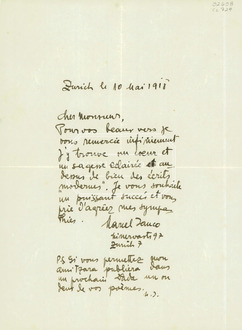 Zurich le 10 Mai 1918
Cher Monsieur,
Pour vos beaux vers je
vous remercie infiniment
j'y trouve un cœur et
un sagesse eclairée et au
dessus de bien des écrits
modernes". Je vous souhaite
un puissant succès et vous
prie d'agréer mes sympa
thies.
Marcel Janco
Zürich 7
P.S. Si vous permettez mon
ami Tzara publiera dans
un prochain Dada un ou
deux de vos poèmes.
M.J.